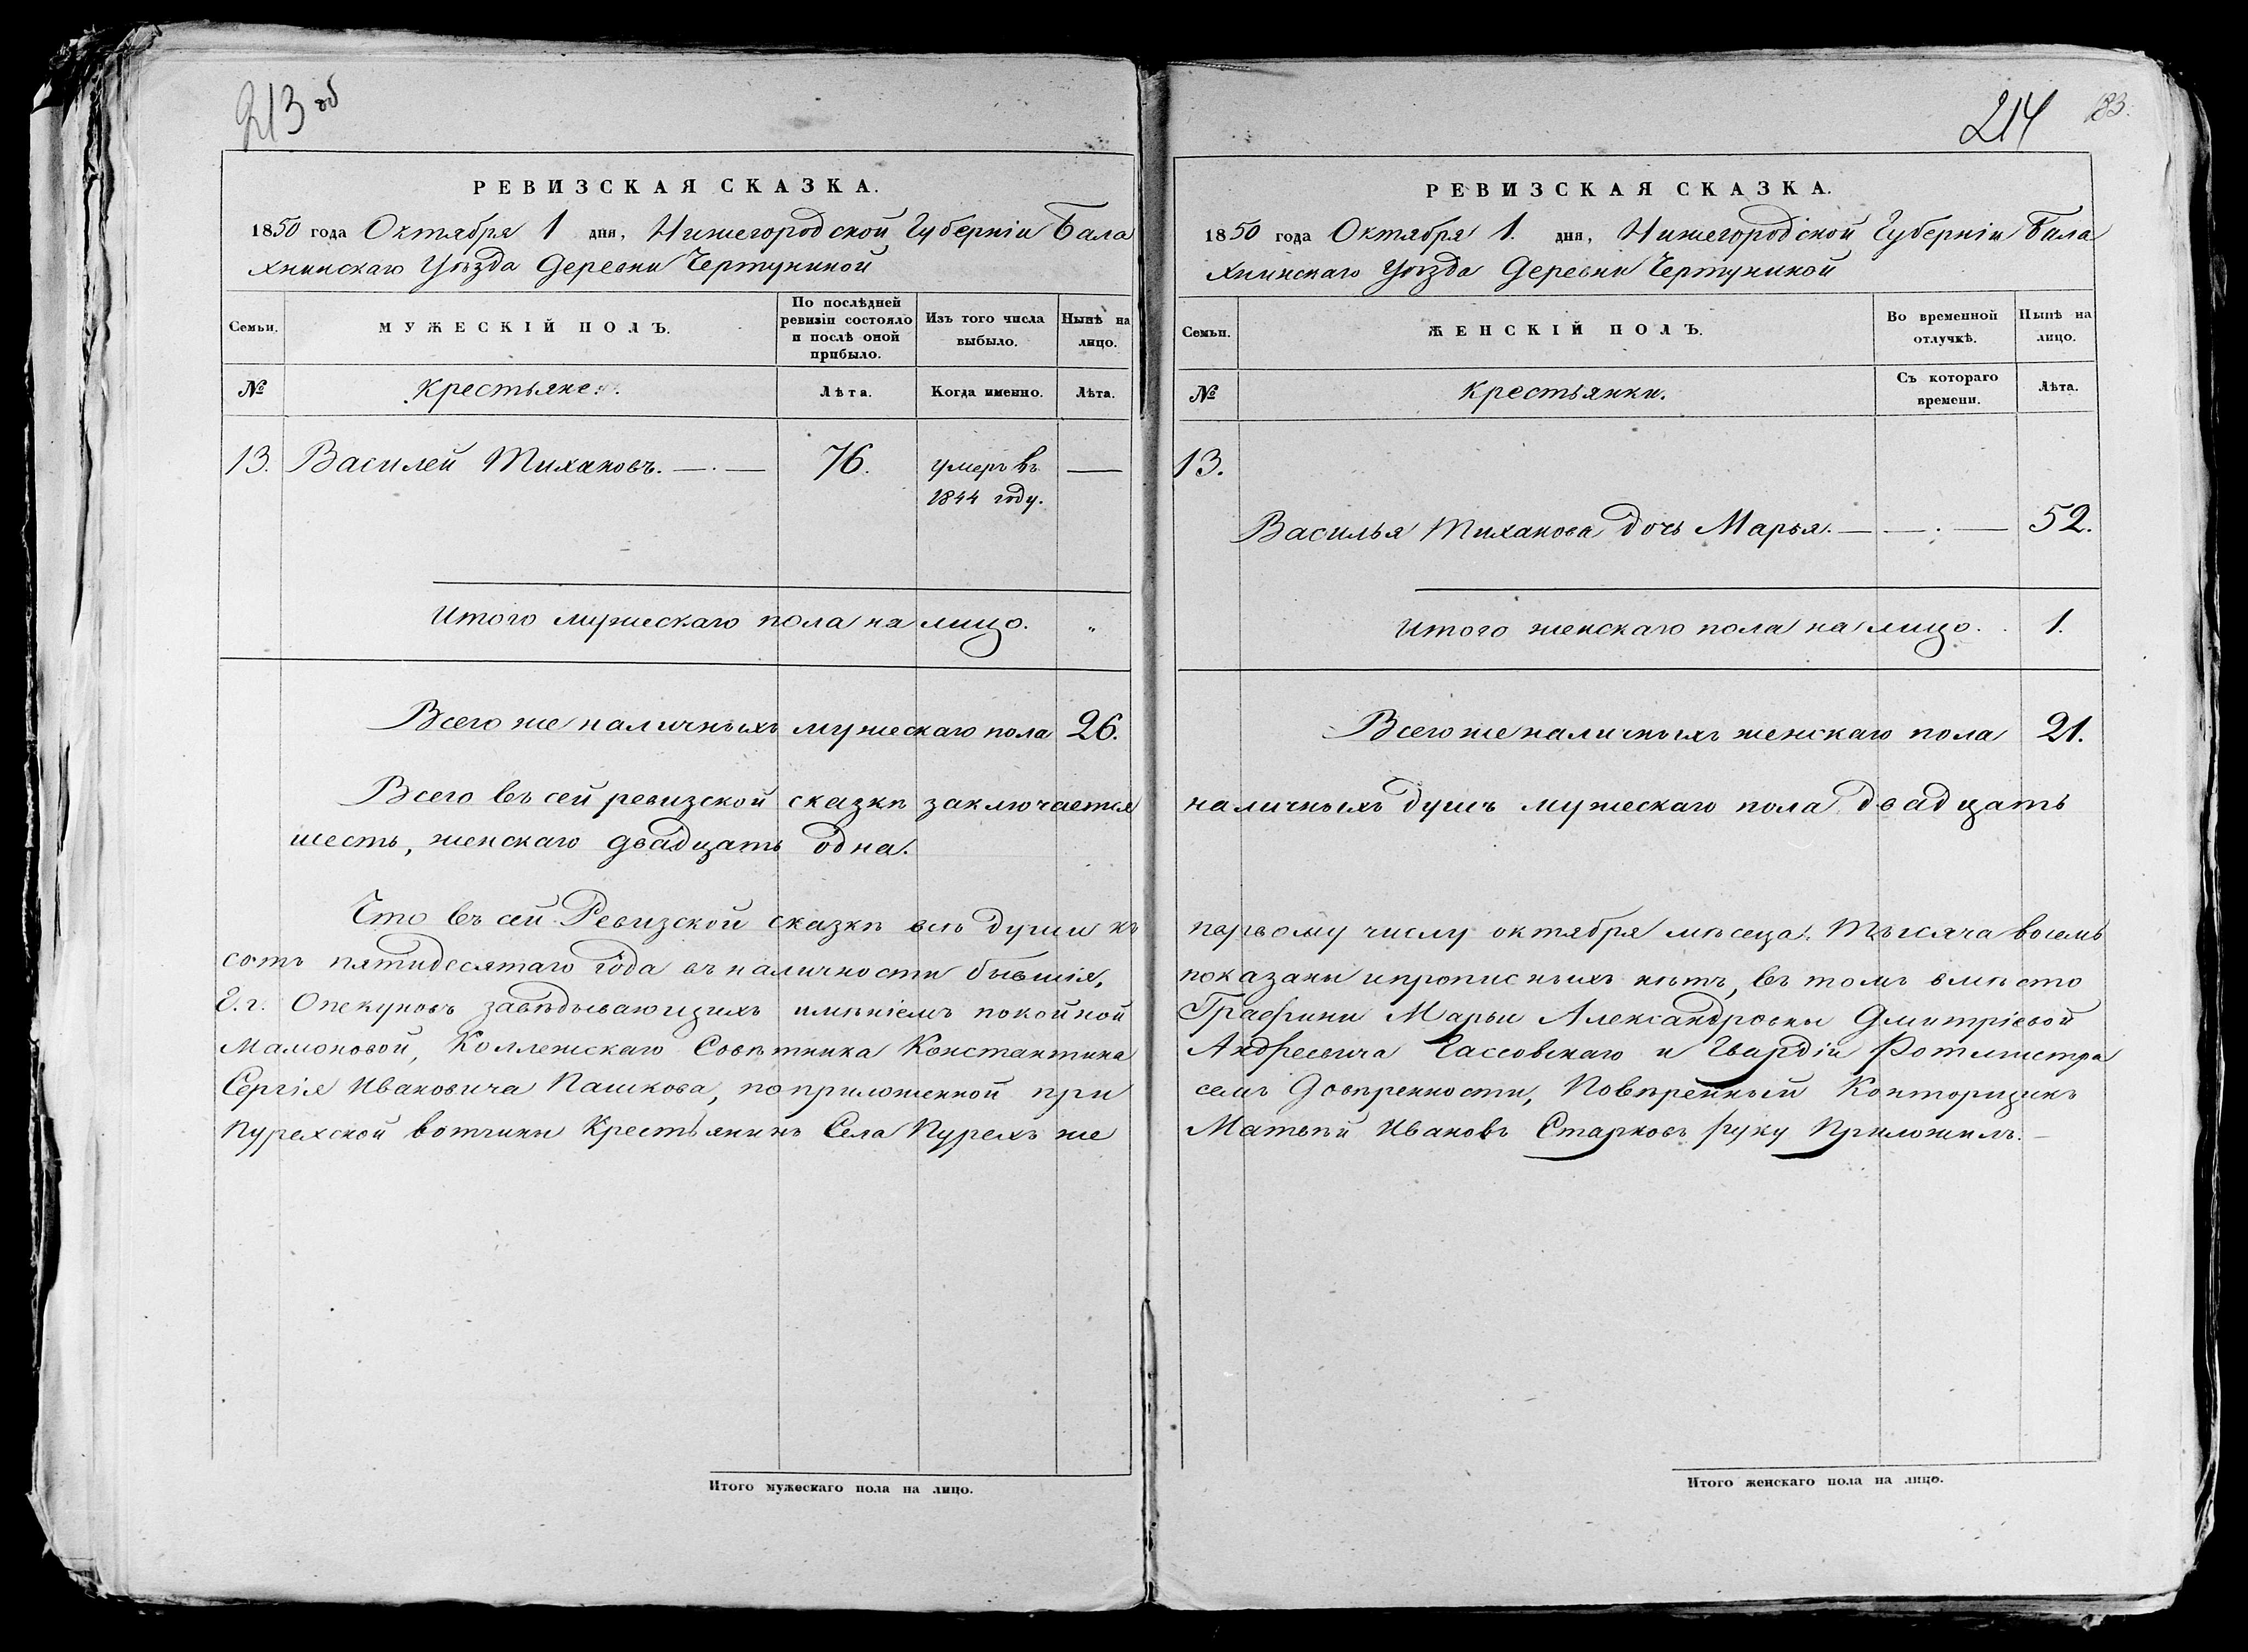 213 об
РЕВИЗСКАЯ СКАЗКА.
1850 года Октября 1 дня, Нижегородской Губерніи Бала
хнинскаго Уѣзда Деревни Чертуниной
Семьи.
МУЖЕСКІЙ ПОЛЪ.
По послѣдней
ревизіи состояло
и послѣ оной
прибыло.
Изъ того числа
выбыло.
Нынѣ на
лицо.
№
Крестьяне:
Лѣта.
Когда именно.
Лѣта.
13. Василей Тихановъ. — . — 76. умеръ въ —
1844 году.
Итого мужескаго пола на лицо. „
Всего же наличныхъ мужескаго пола 26.
Всего въ сей ревизской сказкѣ заключается
шесть, женскаго двадцать одна.
Что въ сей Ревизской сказкѣ всѣ души къ
сотъ пятидесятаго года въ наличности бывшія,
Г.г. Опекуновъ завѣдывающихъ имѣніемъ покойной
Мамоновой, Коллежскаго Совѣтника Константина
Сергія Ивановича Пашкова, по приложенной при
Пурехской вотчины Крестьянинъ Села Пурехъ же
Итого мужескаго пола на лицо.
214 183.
РЕВИЗСКАЯ СКАЗКА.
1850 года Октября 1. дня, Нижегородской Губерніи Бала
хнинскаго Уѣзда Деревни Чертуниной
Семьи.
ЖЕНСКІЙ ПОЛЪ.
Во временной
отлучкѣ.
Нынѣ на
лицо.
№
Крестьянки.
Съ котораго
времени.
Лѣта.
13.
Василья Тиханова дочь Марья. — — . — 52.
Итого женскаго пола на лицо. . 1.
Всего же наличныхъ женскаго пола 21.
наличныхъ душъ мужескаго пола двадцать
первому числу октября мѣсяца. Тысяча восемь
показаны и прописныхъ нѣтъ, въ томъ вмѣсто
Графини Марьи Александровны Дмитріевой
Андреевича Чассовскаго и Гвардіи Ротмистра
семъ Довѣренности, Повѣренный Конторщикъ
Матвѣй Ивановъ Старковъ руку Приложилъ. —
Итого женскаго пола на лицо.